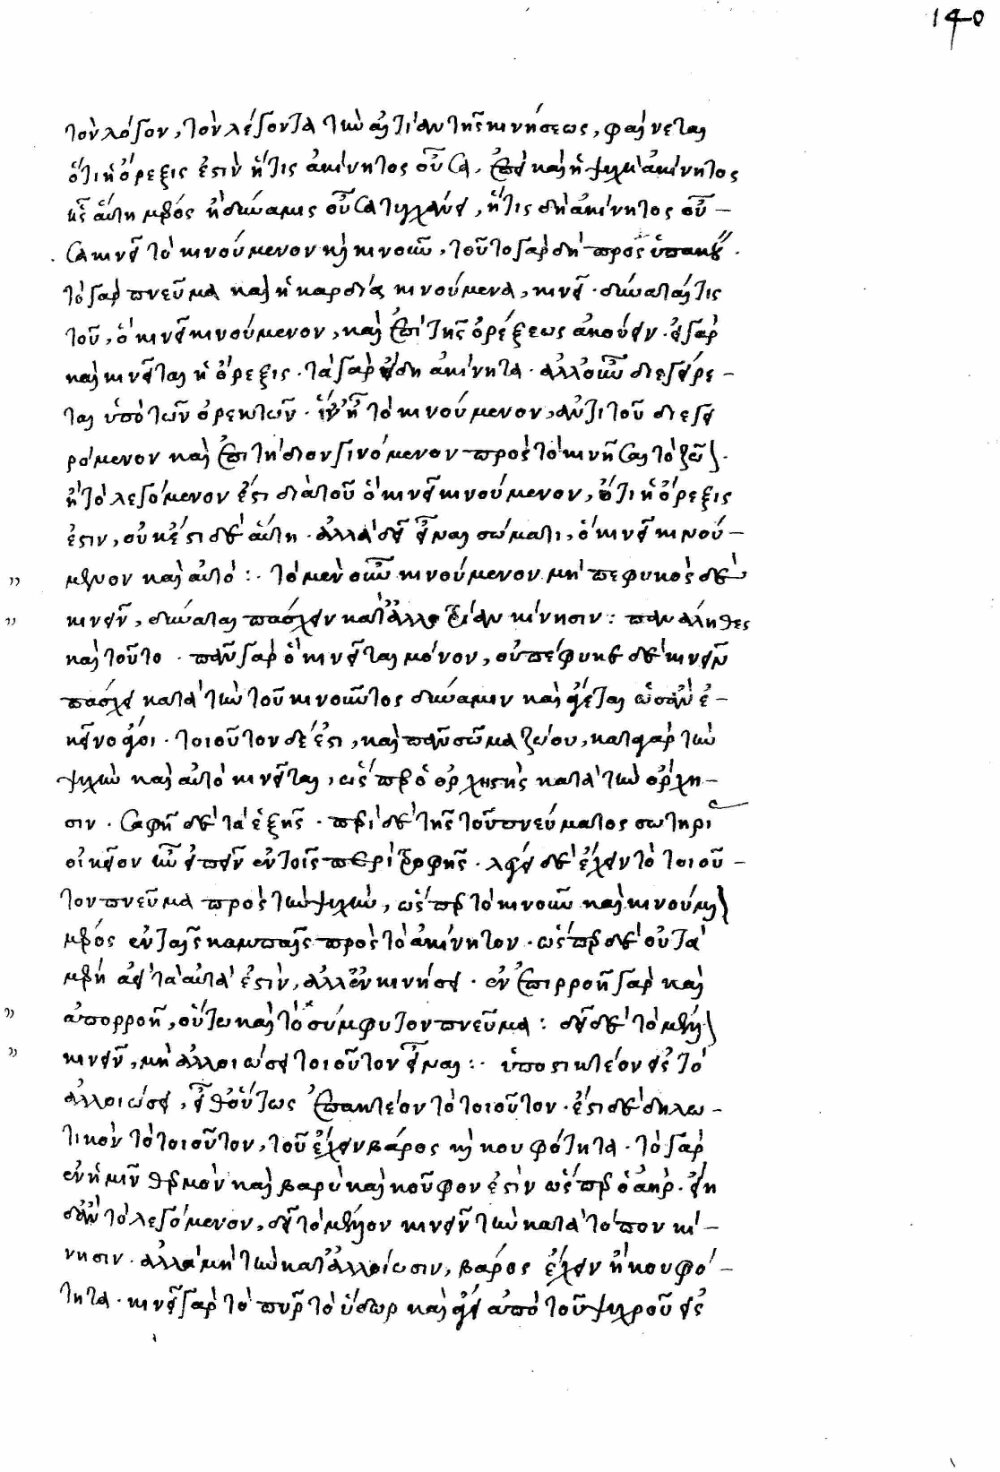 140
τὸν λόγον, τὸν λέγοντα τὴν αἰτίαν τῆς κινήσεως, φαίνεται
ὅτι ἡ ὄρεξις ἐστὶν ἥτις ἀκίνητος οὖσα, ἐπεὶ καὶ ἡ ψυχὴ ἀκίνητος
ἧς αὕτη μέρος ἢ δύναμις οὖσα τυγχάνει, ἥτις δὴ ἀκίνητος οὖ-
σα κινεῖ τὸ κινούμενον καὶ κινοῦν, τοῦτο γὰρ δὴ προσυπακου.
τὸ γὰρ πνεῦμα καὶ ἡ καρδία κινούμενα, κινεῖ. δύναταί τις
τοῦ, ὃ κινεῖ κινούμενον, καὶ ἐπὶ τῆς ὀρέξεως ἀκούειν. εἰ γὰρ
καὶ κινεῖται ἡ ὄρεξις. τὰ γὰρ εἴδη ἀκίνητα. ἀλλ' οὖν διεγείρε-
ται ὑπὸ τῶν ὀρεκτῶν. ἵν' ᾖ τὸ κινούμενον, ἀντὶ τοῦ διεγει
ρόμενον καὶ ἐπιτήδειον γινόμενον πρὸς τὸ κινῆσαι τὸ ζῶον.
ἢ τὸ λεγόμενον ἔστι διὰ τοῦ ὃ κινεῖ κινούμενον, ὅτι ἡ ὄρεξις
ἐστιν, οὐκ ἔστι δὲ αὕτη. ἀλλὰ δεῖ εἶναι σώματι, ὃ κινεῖ κινού-
μενον καὶ αὐτό :. τὸ μὲν οὖν κινούμενον μὴ πεφυκὸς δὲ
κινεῖν, δύναται πάσχειν κατ' ἀλλοτρίαν κίνησιν : πάνυ ἀληθὲς
καὶ τοῦτο. πᾶν γὰρ ὃ κινεῖται μόνον, οὐ πέφυκε δὲ κινεῖν
πάσχει κατὰ τὴν τοῦ κινοῦντος δύναμιν καὶ ἄγεται ὡς ἂν ἐ-
κεῖνο ἄγοι. τοιοῦτον δέ ἐστι, καὶ πᾶν σῶμα ζώου, κατὰ γὰρ τὴν
ψυχὴν καὶ αὐτὸ κινεῖται, ὥσπερ ὁ ὀρχηστὴς κατὰ τὴν ὄρχη-
σιν. σαφῆ δὲ τὰ ἑξῆς. περὶ δὲ τῆς τοῦ πνεύματος σωτηρί
οἰκεῖον ἦν εἰπεῖν ἐν τοῖς περὶ τροφῆς. λέγει δὲ ἔχειν τὸ τοιοῦ-
τον πνεῦμα πρὸς τὴν ψυχὴν, ὥσπερ τὸ κινοῦν καὶ κινούμενον
μέρος ἐν ταῖς καμπαῖς πρὸς τὸ ἀκίνητον. ὥσπερ δὲ οὐ τὰ
μέρη ἀεὶ τὰ αὐτὰ ἐστὶν, ἀλλ' ἐν κινήσει. ἐν ἐπιρροῇ γὰρ καὶ
ἀπορροῇ, οὕτω καὶ τὸ σύμφυτον πνεῦμα : δεῖ δὲ τὸ μέλλον
κινεῖν, μὴ ἀλλοιώσει τοιοῦτον εἶναι :. ὑποστικτέον εἰς τὸ
ἀλλοιώσει, εἶθ' οὕτως ἐπακτέον τὸ τοιοῦτον. ἔστι δὲ δηλω-
τικὸν τὸ τοιοῦτον, τοῦ ἔχειν βάρος καὶ κουφότητα. τὸ γὰρ
ἐν ἡμῖν θερμὸν καὶ βαρὺ καὶ κοῦφον ἐστὶν ὥσπερ ὁ ἀήρ. εἴη
δ' ἂν τὸ λεγόμενον, δεῖ τὸ μέλλον κινεῖν τὴν κατὰ τόπον κί-
νησιν. ἀλλὰ μὴ τὴν κατ' ἀλλοίωσιν, βάρος ἔχειν ἢ κουφό-
τητα. κινεῖ γὰρ τὸ πῦρ τὸ ὕδωρ καὶ ἄγει ἀπὸ τοῦ ψυχροῦ εἰς